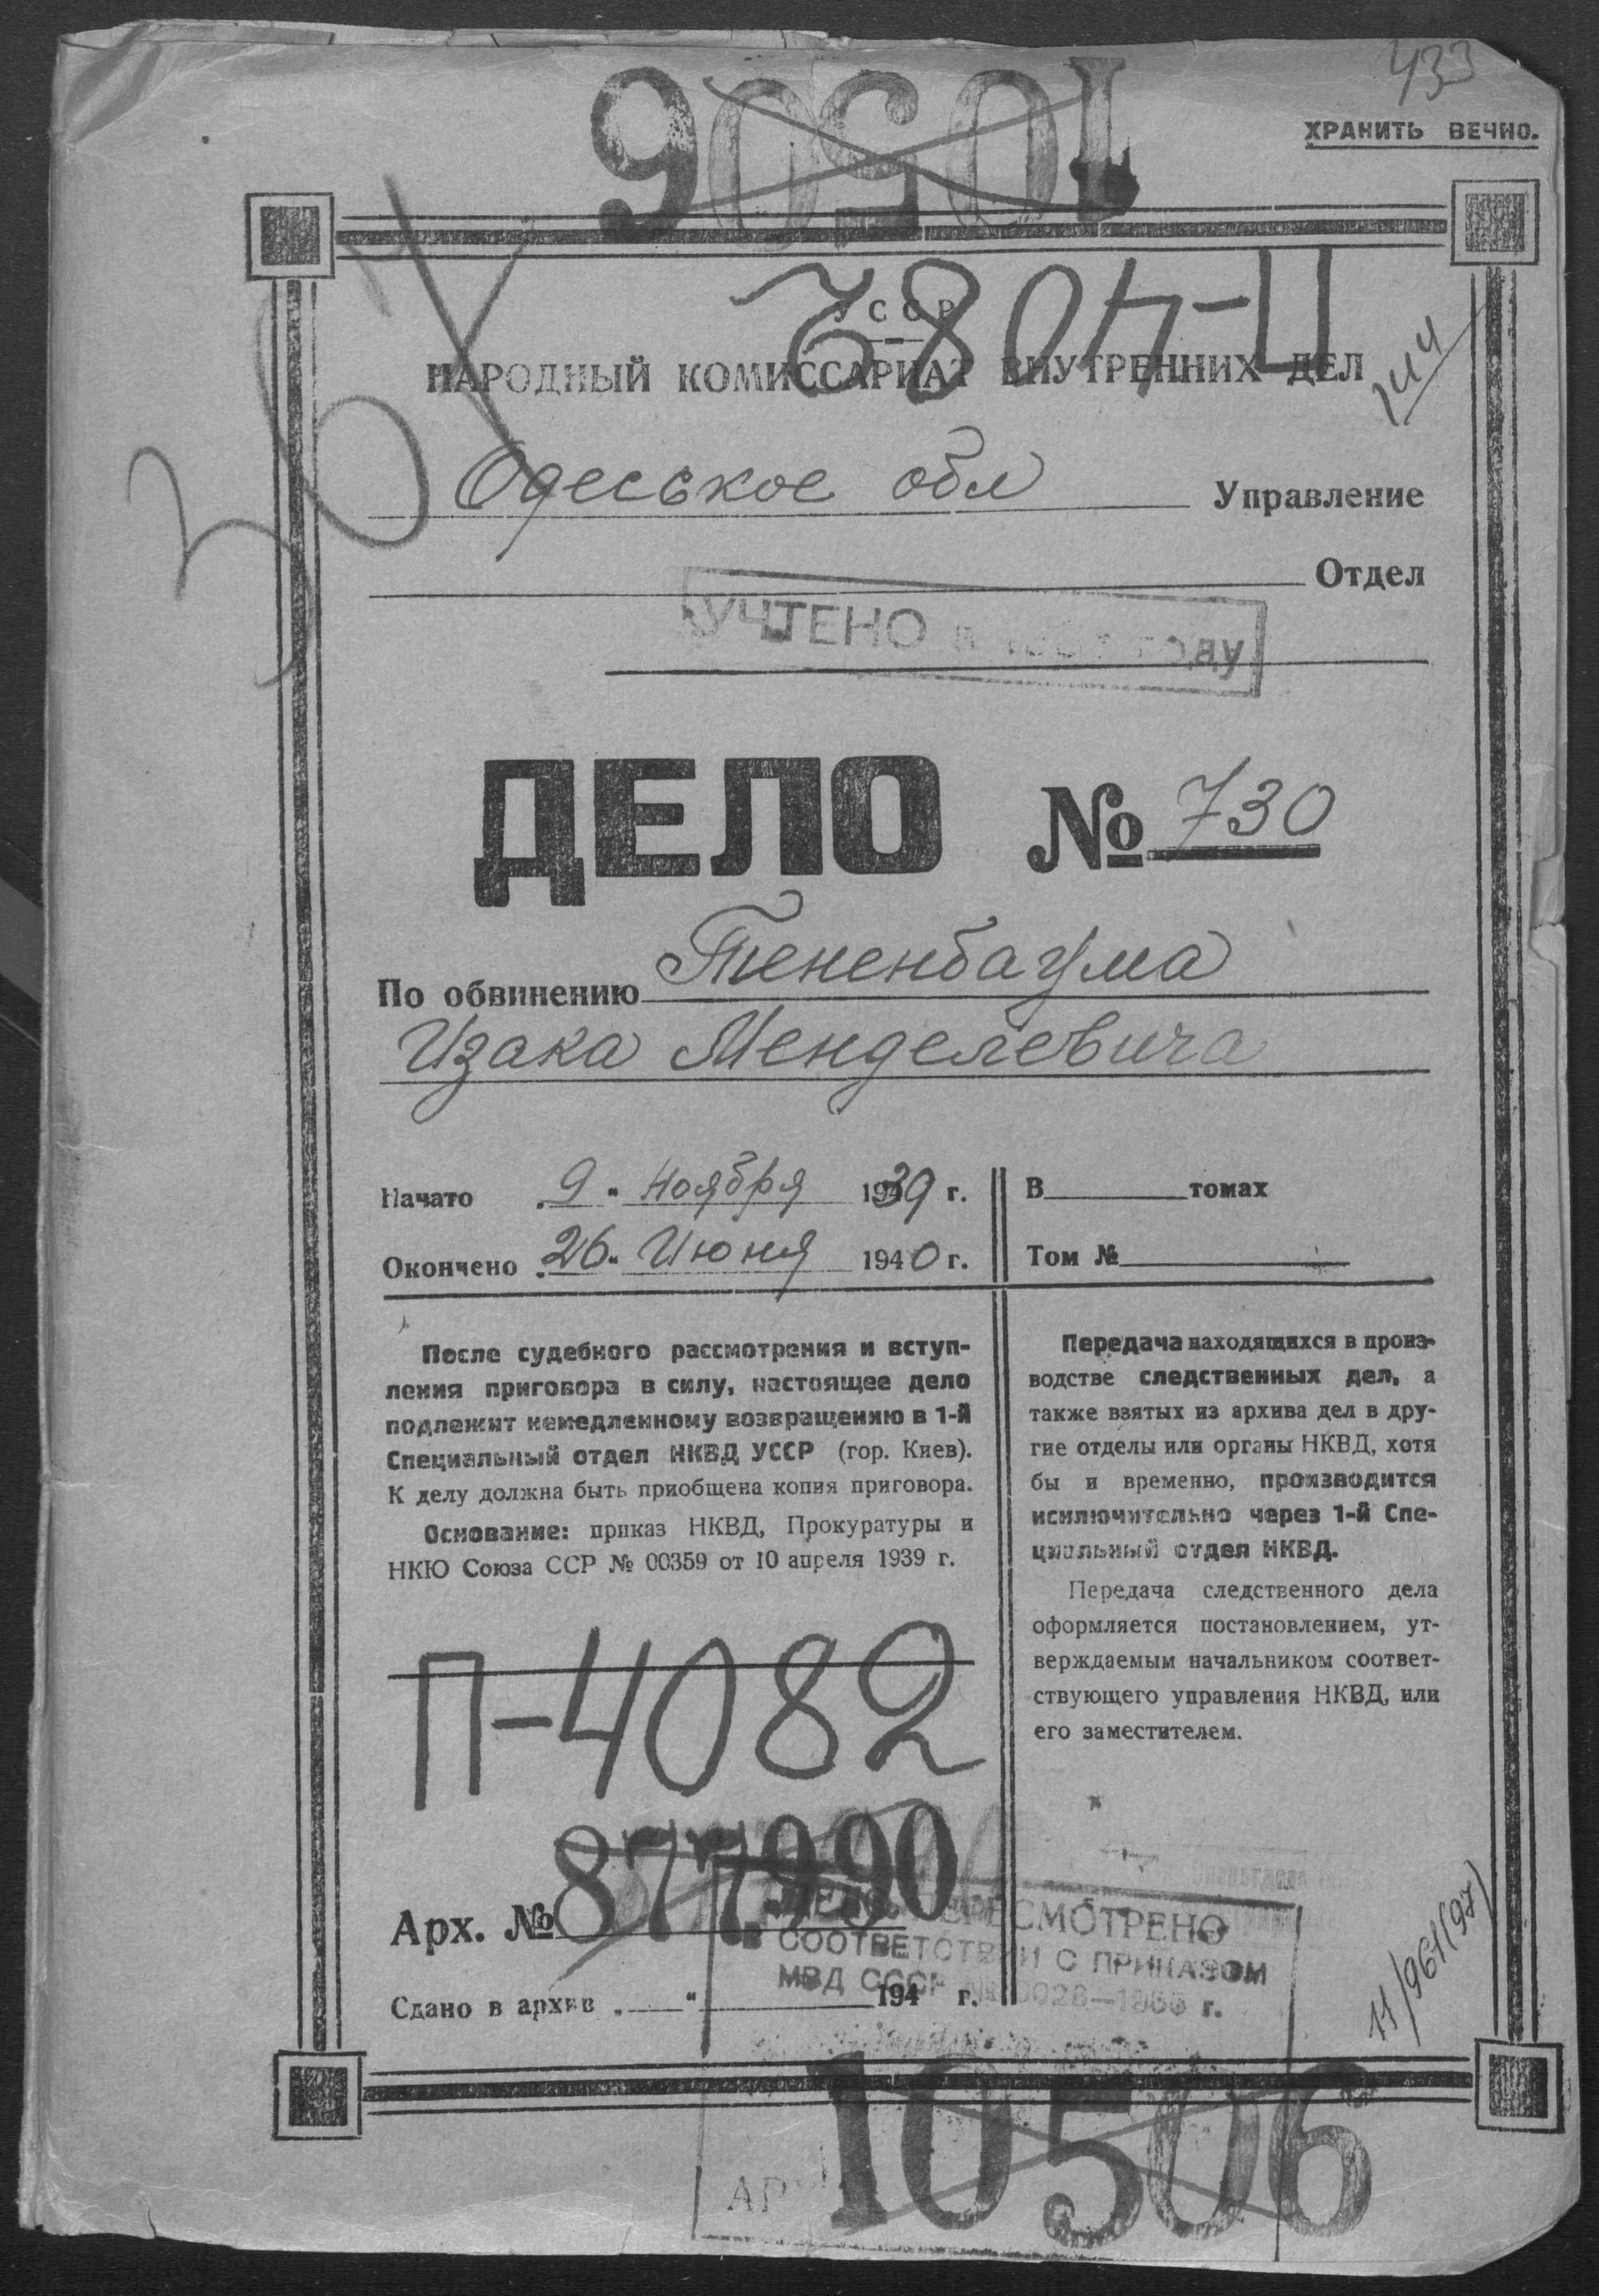 433
ХРАНИТЬ ВЕЧНО.
10506
П-4082
УССР
НАРОДНЫЙ КОМИССАРИАТ ВНУТРЕННИХ ДЕЛ
Одеськое обл Управление
Отдел
УЧТЕНО
ДЕЛО № 730
По обвинению Тененбаума
Изака Менделевича
Начато „9„ ноября 1939 г.
Окончено „26„ Июня 1940 г.
В томах
Том №
После судебного рассмотрения и вступ-
ления приговора в силу, настоящее дело
подлежит немедленному возвращению в 1-й
Специальный отдел НКВД УССР (гор. Киев).
К делу должна быть приобщена копия приговора.
Основание: приказ НКВД, Прокуратуры и
НКЮ Союза ССР № 00359 от 10 апреля 1939 г.
Передача находящихся в произ-
водстве следственных дел, а
также взятых из архива дел в дру-
гие отделы или органы НКВД, хотя
бы и временно, производится
исключительно через 1-й Спе-
циальный отдел НКВД.
Передача следственного дела
оформляется постановлением, ут-
верждаемым начальником соответ-
ствующего управления НКВД, или
его заместителем.
П-4082
Арх. № 877990
ДЕЛО ПЕРЕСМОТРЕНО
СООТВЕТСТВИИ С ПРИКАЗОМ
МВД СССР № 0028—1955 г.
Сдано в архив „ “ 194 г.
11/961(97)
10506